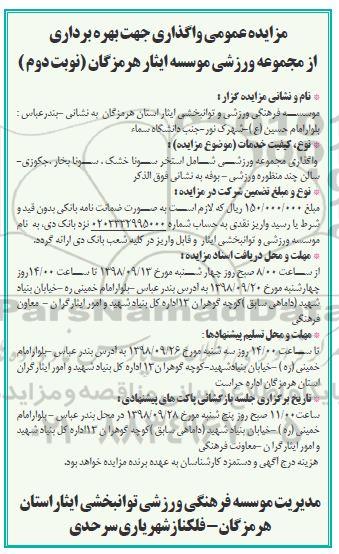 مزایده عمومی واگذاری جهت بهره برداری
از مجموعه ورزشی موسسه ایثار هرمزگان (نوبت دوم)
* نام و نشانی مزایده گزار :
موسسه فرهنگی ورزشی و توانبخشی ایثار استان هرمزگان به نشانی -بندرعباس :
بلوارامام حسین (ع)-شهرک نور-جنب دانشگاه سماء
* نوع، کیفیت خدمات (موضوع مزایده) :
واگذاری مجموعه ورزشی شامل استخر سونا خشک ، سونا بخار ،جکوزی-
سالن چند منظوره ورزشی - بوفه به نشانی فوق الذکر
* نوع و مبلغ تضمین شرکت در مزایده :
مبلغ ۱۵۰/۰۰۰/۰۰۰ ریال که لازم است به صورت ضمانت نامه بانکی بدون قید و
شرط یا رسید واریز نقدی به حساب شماره ۰۲۰۳۳۳۲۹۹۵۰۰۰ نزد بانک دی، به نام
موسسه ورزشی و توانبخشی ایثار و قابل واریز در کلیه شعب بانک دی ارائه گردد.
* مهلت و محل دریافت اسناد مزایده :
از ساعت ۸/۰۰ صبح روز چهارشنبه مورخ ۱۳۹۸/۰۹/۱۳ تا ساعت ۱۴/۰۰ روز
چهارشنبه مورخ ۱۳۹۸/۰۹/۲۰ به آدرس بندر عباس -بلوارامام خمینی ره -خیابان بنیاد
شهید (داماهی سابق )کوچه گوهران ۱۳اداره کل بنیاد شهید و امور ایثارگران - معاون
فرهنگی
* مهلت و محل تسلیم پیشنهادها :
تا ساعت ۱۴/۰۰ روز سه شنبه مورخ ۱۳۹۸/۰۹/۲۶ به آدرس بندر عباس -بلوارامام
خمینی (ره) -خیابان بنیادشهید-کوچه گوهران ۱۳ اداره کل بنیاد شهید و امور ایثارگران
استان هرمزگان اداره حراست
* تاریخ برگزاری جلسه بازگشائی پاکت های پیشنهادی :
ساعت ۱۱/۰۰ صبح روز پنج شنبه مورخ ۱۳۹۸/۰۹/۲۸ در محل بندر عباس - بلوارامام
خمینی (ره) -خیابان بنیاد شهید (داماهی سابق )کوچه گوهران ۱۳اداره کل بنیاد شهید
و امور ایثارگران -معاونت فرهنگی
هزینه درج آگهی و دستمزد کارشناسان به عهده برنده مزایده خواهد بود.
مدیریت موسسه فرهنگی ورزشی توانبخشی ایثار استان
هرمزگان- فلکناز شهریاری سرحدی